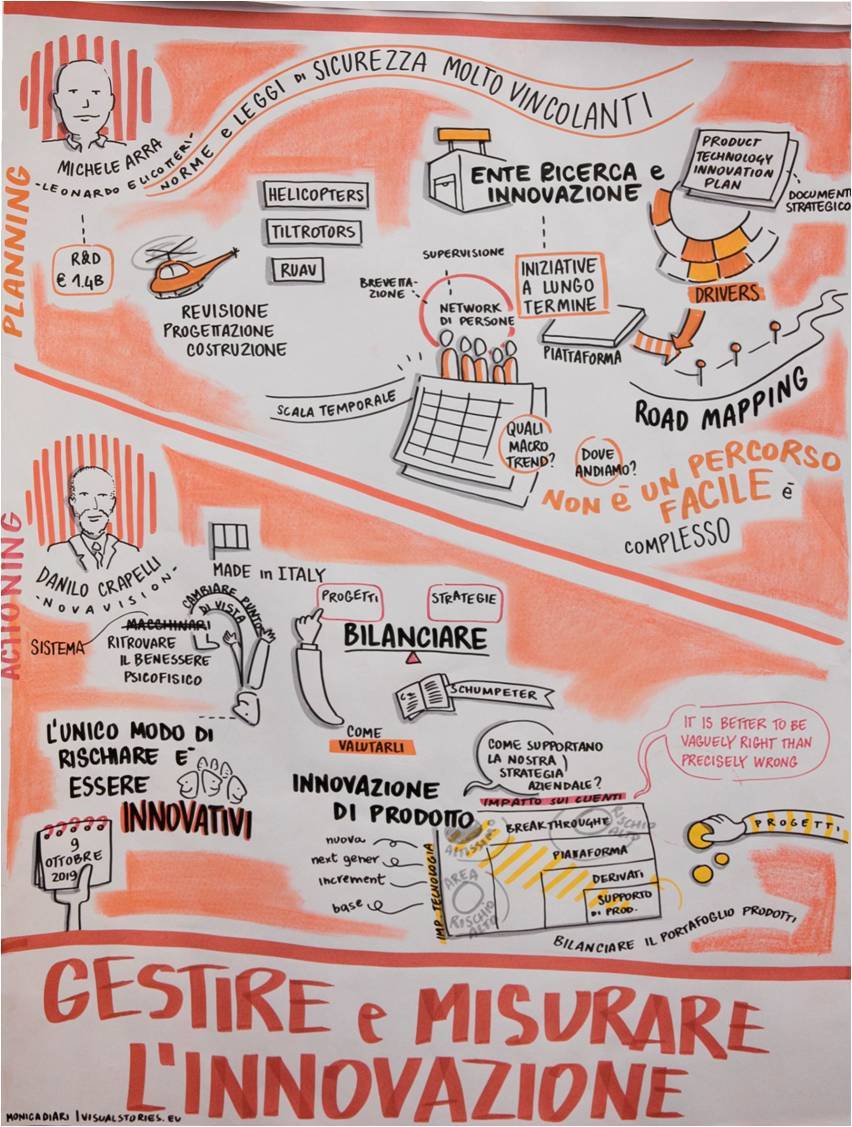 PLANNING
MICHELE ARRA
-LEONARDO ELICOTTERI-
NORME e LEGGI DI SICUREZZA MOLTO VINCOLANTI
R&D
€ 1.4B
REVISIONE
PROGETTAZIONE
COSTRUZIONE
HELICOPTERS
TILTROTORS
RUAV
ENTE RICERCA e
INNOVAZIONE
PRODUCT
TECHNOLOGY
INNOVATION
PLAN
DOCUMENTI
STRATEGICO
DRIVERS
SUPERVISIONE
BREVETTA-
ZIONE
NETWORK
DI PERSONE
INIZIATIVE
A LUNGO
TERMINE
PIATTAFORMA
ROAD MAPPING
SCALA TEMPORALE
QUALI
MACRO
TREND?
DOVE
ANDIAMO?
NON È UN PERCORSO
FACILE è
COMPLESSO
ACTIONING
DANILO CRAPELLI
-NOVAVISION-
MADE in ITALY
SISTEMA
MACCHINARI
RITROVARE
IL BENESSERE
PSICOFISICO
CAMBIARE PUNTO
DI VISTA
PROGETTI
STRATEGIE
BILANCIARE
SCHUMPETER
COME
VALUTARLI
L'UNICO MODO DI
RISCHIARE E'
ESSERE
INNOVATIVI
9
OTTOBRE
2019
INNOVAZIONE
DI PRODOTTO
nuova
next gener
increment
base
COME SUPPORTANO
LA NOSTRA
STRATEGIA
AZIENDALE?
IT IS BETTER TO BE
VAGUELY RIGHT THAN
PRECISELY WRONG
IMPATTO SUI CLIENTI
IMP. TECNOLOGIA
ALTISSIMO
BREAKTHROUGHE
RISCHIO
ALTO
PIATTAFORMA
DERIVATI
SUPPORTO
DI PROD.
AREA
RISCHIO
ALTO
PROGETTI
BILANCIARE IL PORTAFOGLIO PRODOTTI
GESTIRE e MISURARE
L'INNOVAZIONE
MONICADIARI | VISUALSTORIES.EU